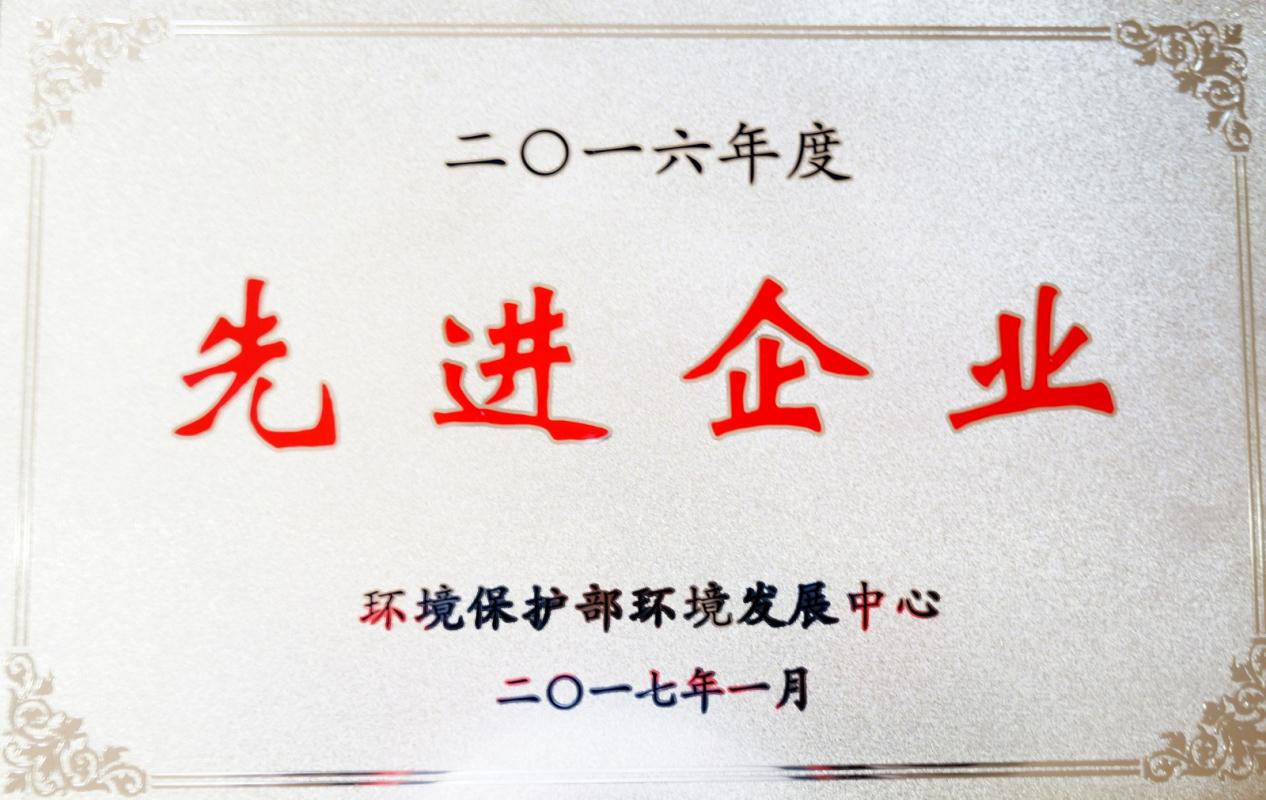 二〇一六年度
先进企业
环境保护部环境发展中心
二〇一七年一月